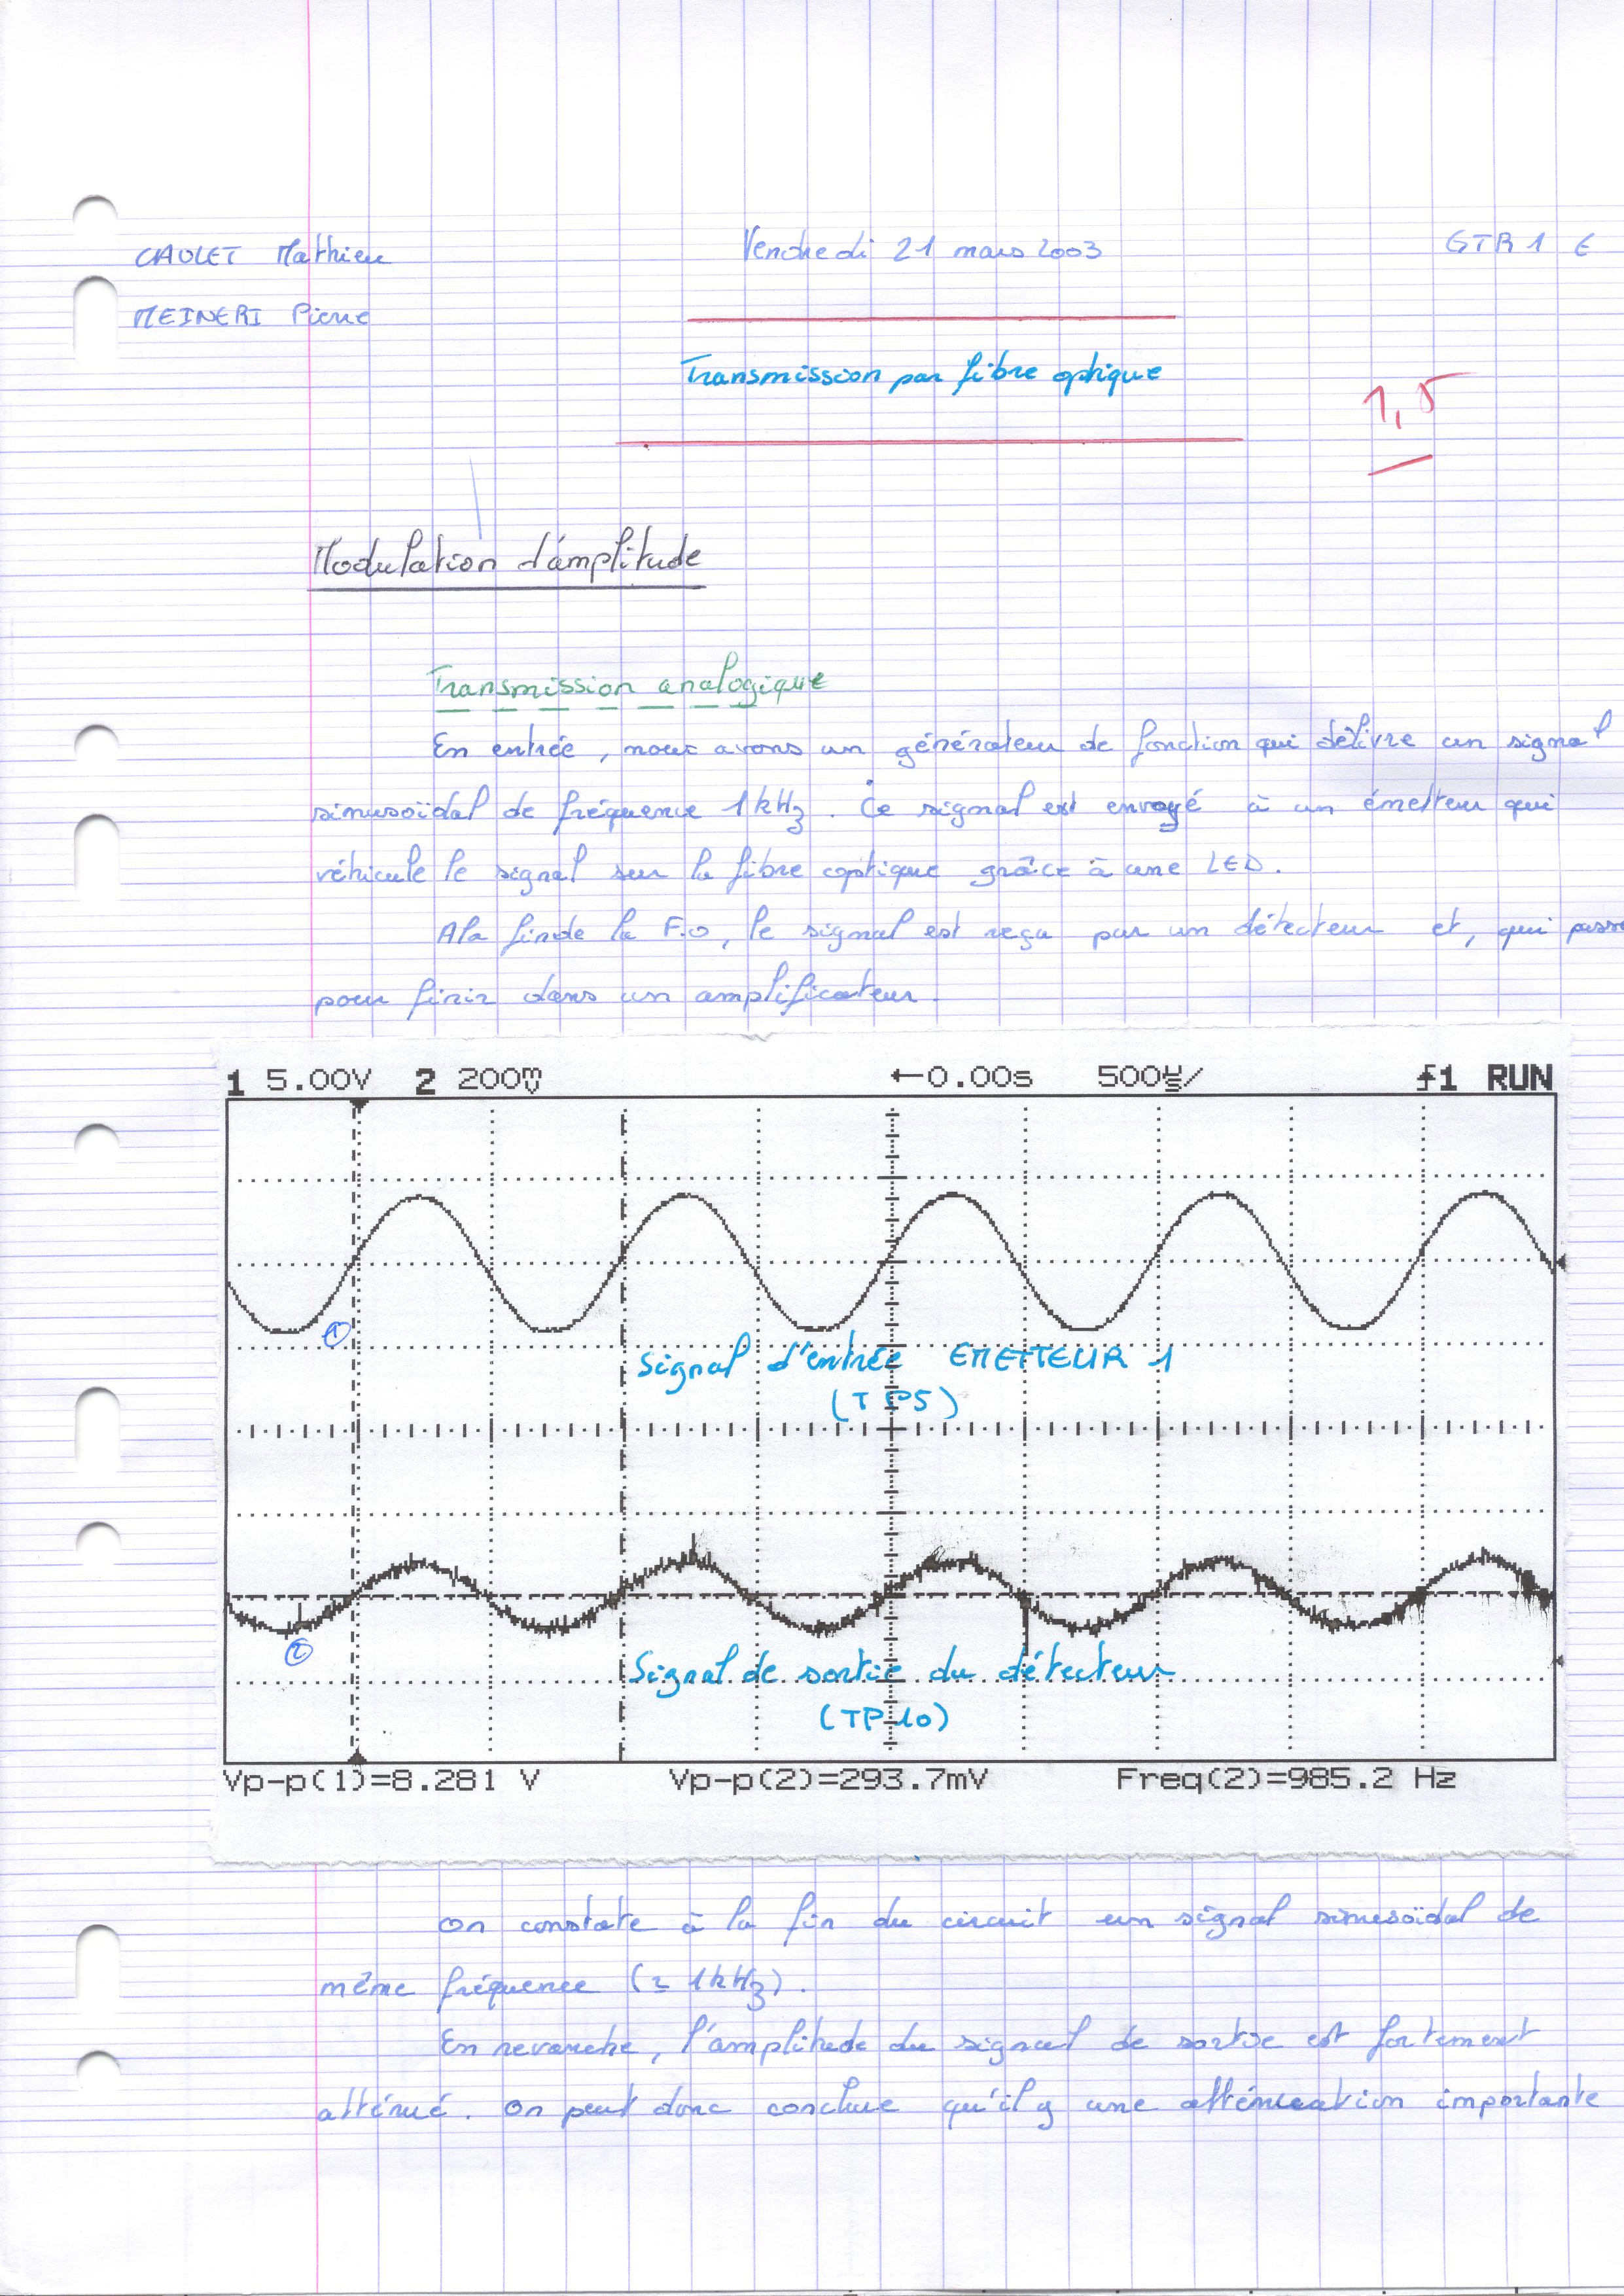 CAULET Mathieu
Vendredi 21 mars 2003
GTR1 E
MEINERI Pierre
Transmission par fibre optique
1,5
Modulation d'amplitude
Transmission analogique
En entrée, nous avons un générateur de fonction qui délivre un signal
sinusoïdal de fréquence 1kHz. Ce signal est envoyé à un émetteur qui
véhicule le signal sur la fibre optique grâce à une LED.
A la fin de la F.O, le signal est reçu par un détecteur et, qui passe
pour finir dans un amplificateur.
1 5.00V 2 200mV ←0.00s 500µs/ ƒ1 RUN
①
Signal d'entrée EMETTEUR 1
(TP5)
②
Signal de sortie du détecteur
(TP10)
Vp-p(1)=8.281 V Vp-p(2)=293.7mV Freq(2)=985.2 Hz
On constate à la fin du circuit un signal sinusoïdal de
même fréquence (≃ 1kHz).
En revanche, l'amplitude du signal de sortie est fortement
atténué. On peut donc conclure qu'il y une atténuation importante